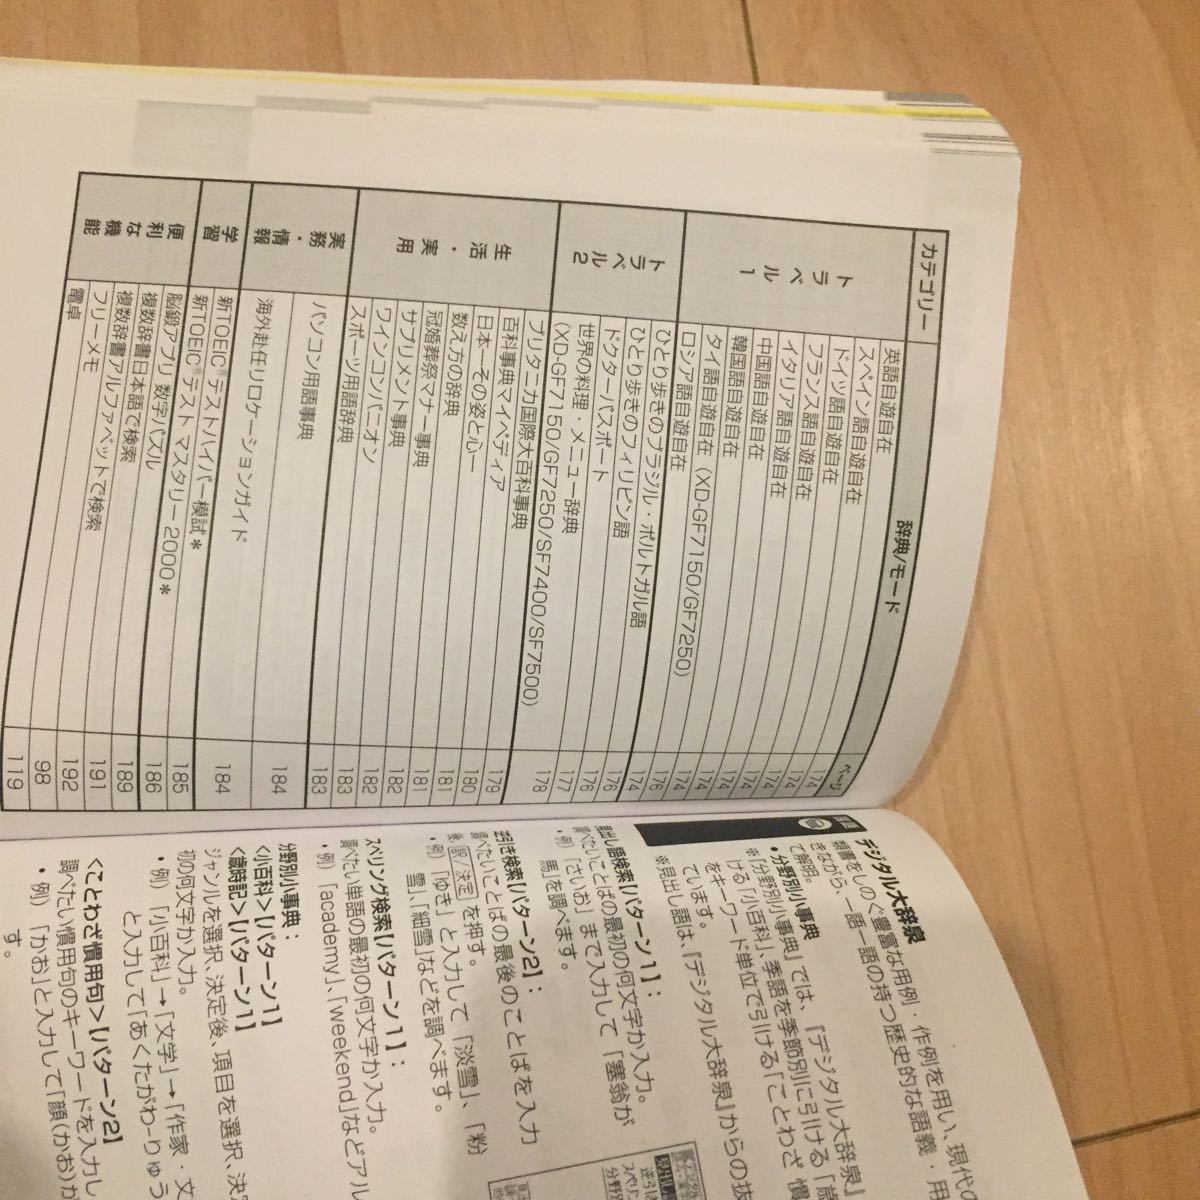 カテゴリー 辞典/モード ページ
トラベル1 英語自遊自在 174
スペイン語自遊自在 174
ドイツ語自遊自在 174
フランス語自遊自在 174
イタリア語自遊自在 174
中国語自遊自在 174
韓国語自遊自在 174
タイ語自遊自在 (XD-GF7150/GF7250) 176
ロシア語自遊自在 174
トラベル2 ひとり歩きのブラジル・ポルトガル語 176
ひとり歩きのフィリピン語 176
ドクターパスポート 177
世界の料理・メニュー辞典
(XD-GF7150/GF7250/SF7400/SF7500) 178
生活・実用 ブリタニカ国際大百科事典 179
百科事典マイペディア 180
日本―その姿と心― 181
数え方の辞典 181
冠婚葬祭マナー事典 182
サプリメント事典 182
ワインコンパニオン 183
スポーツ用語辞典 183
実務・情報 パソコン用語事典 184
海外赴任リロケーションガイド 184
学習 新TOEIC®テストハイパー模試* 185
新TOEIC®テスト マスタリー2000* 186
便利な機能 脳鍛アプリ 数字パズル 189
複数辞書日本語で検索 191
複数辞書アルファベットで検索 192
フリーメモ 98
電卓 119
デジタル大辞泉
類書をしのぐ豊富な用例・作例を用い、現代の
きながら、一語一語の持つ歴史的な語義・用
て解明。
・分野別小事典
※「分野別小事典」では、『デジタル大辞泉』
ける「小百科」、季語を季節別に引ける「歳
をキーワード単位で引ける「ことわざ慣
ています。
※見出し語は、『デジタル大辞泉』からの抜
見出し語検索【パターン1】:
調べたいことばの最初の何文字か入力。
・例)「さいお」まで入力して「塞翁が
馬」を調べます。
逆引き検索【パターン2】:
調べたいことばの最後のことばを入力
後、訳/決定を押す。
・例)「ゆき」と入力して「淡雪」、「粉
雪」、「細雪」などを調べます。
スペリング検索【パターン1】:
調べたい単語の最初の何文字か入力。
・例)「academy」、「weekend」などアル
分野別小事典:
<小百科>【パターン1】
<歳時記>【パターン1】
ジャンルを選択、決定後、項目を選択、決定
初の何文字か入力。
・例)「小百科」→「文学」→「作家・文
と入力して「あくたがわ-りゅう
<ことわざ慣用句>【パターン2】
調べたい慣用句のキーワードを入力し
・例)「かお」と入力して「顔(かお)が
す。